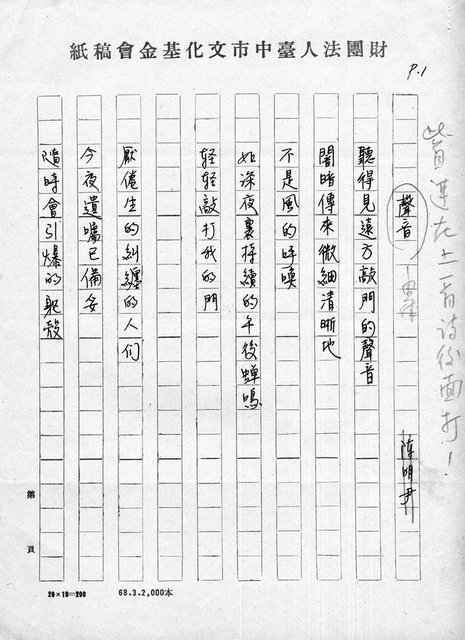 財團法人臺中市文化基金會稿紙
P.1
皆連在上首詩後面打!
聲音
陈明尹
聽得見遠方敲門的聲音
闇暗傳來微細清晰地
不是風的呼喚
如深夜裏持續的午後蟬鳴
轻轻敲打我的門
厭倦生的糾纏的人们
今夜遺囑已備妥
隨時會引爆的軀殼
第 頁
20×10=200
68.3.2,000本